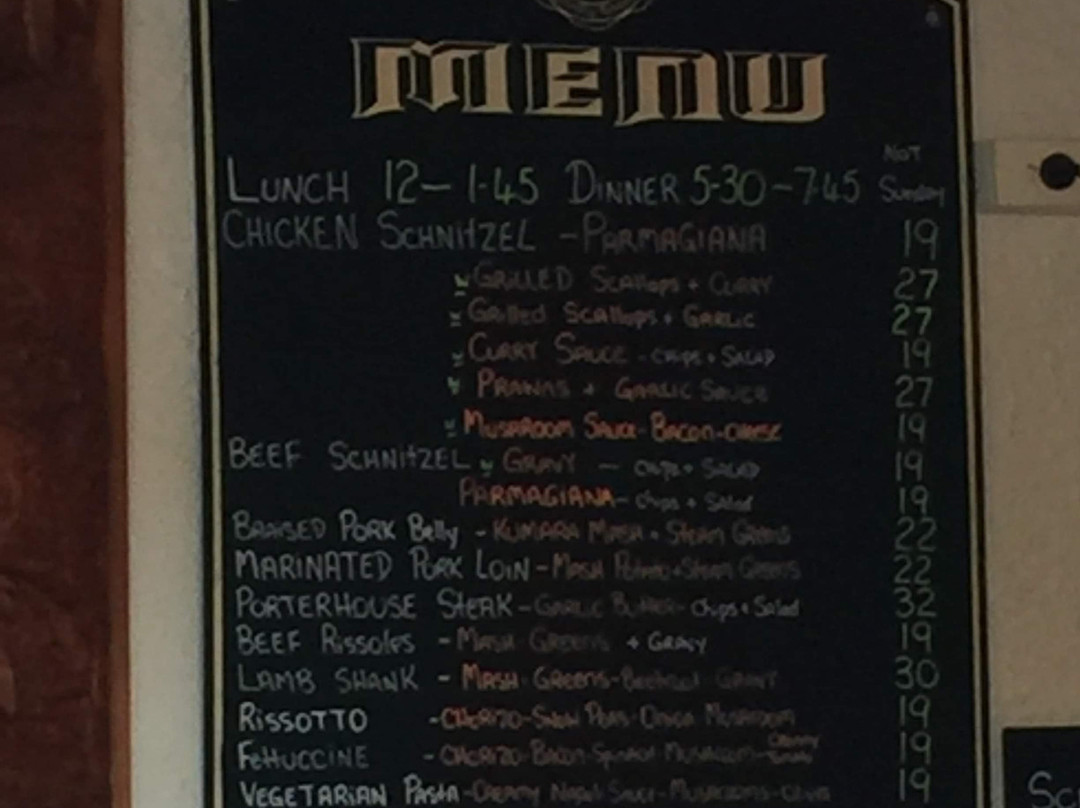 MENU
NOT
LUNCH 12- 1-45 DINNER 5-30-7-45 Sunday
CHICKEN SCHNITZEL - PARMAGIANA 19
GRILLED SCALLOPS + CURRY 27
GRILLED SCALLOPS + GARLIC 27
CURRY SAUCE - CHIPS + SALAD 19
PRAWNS + GARLIC SAUCE 27
MUSHROOM SAUCE-BACON-CHEESE 19
BEEF SCHNITZEL GRAVY - CHIPS + SALAD 19
PARMAGIANA- Chips + Salad 19
BRAISED PORK Belly - KUMARA MASH + Steam Greens 22
MARINATED PORK LOIN - MASH POTATO + Steam Greens 22
PORTERHOUSE STEAK - GARLIC BUTTER - Chips + Salad 32
BEEF Rissoles - MASH GREENS + GRAVY 19
LAMB SHANK - MASH-GREENS- GRAVY 30
RISSOTTO -CHORIZO-SNOW PEAS- MUSHROOM 19
FETTUCCINE - CHORIZO-BACON-SPINACH MUSHROOM- 19
VEGETARIAN PASTA -CREAMY SAUCE-MUSHROOMS- 19
Sc